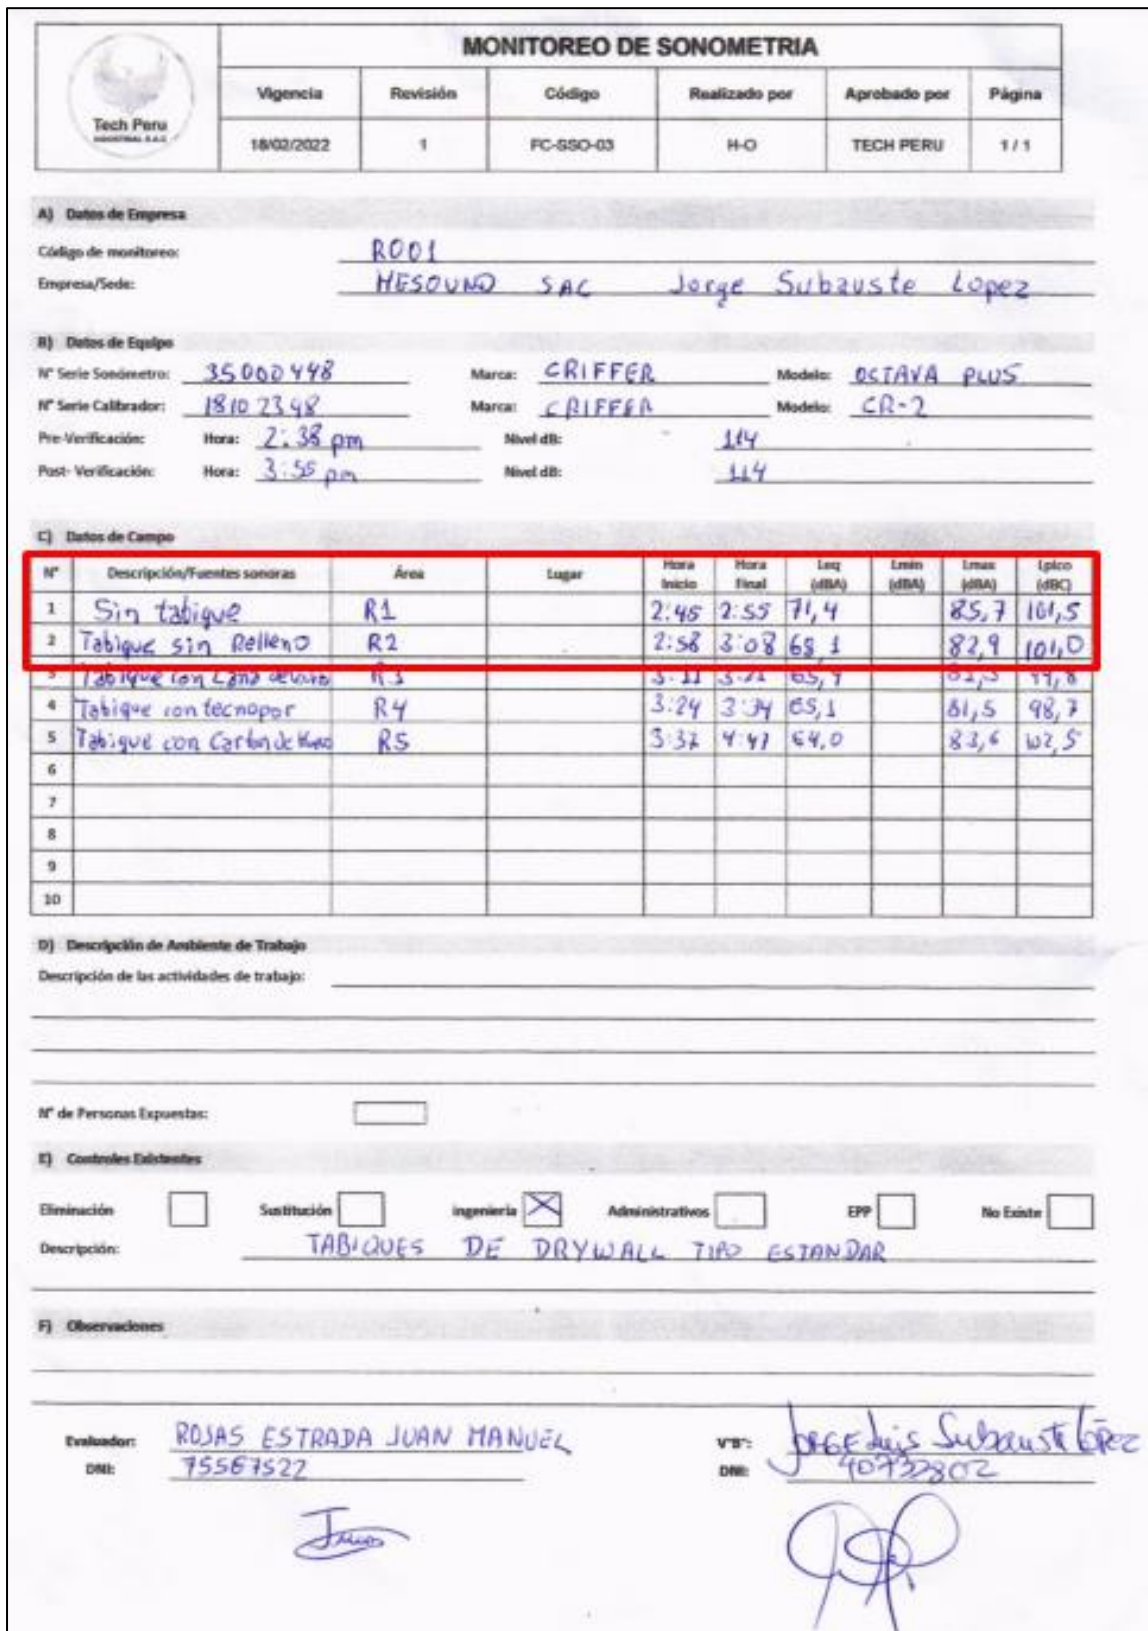 MONITOREO DE SONOMETRIA
Tech Peru
INDUSTRIAL S.A.C
Vigencia Revisión Código Realizado por Aprobado por Página
18/02/2022 1 FC-SSO-03 H-O TECH PERU 1 / 1
A) Datos de Empresa
Código de monitoreo: R001
Empresa/Sede: HESOUND SAC Jorge Subauste Lopez
B) Datos de Equipo
N° Serie Sonómetro: 35000448 Marca: CRIFFER Modelo: OCTAVA PLUS
N° Serie Calibrador: 18102348 Marca: CRIFFER Modelo: CR-2
Pre-Verificación: Hora: 2:38 pm Nivel dB: 114
Post- Verificación: Hora: 3:55 pm Nivel dB: 114
C) Datos de Campo
N° Descripción/Fuentes sonoras Área Lugar Hora Inicio Hora Final Leq (dBA) Lmin (dBA) Lmax (dBA) Lpico (dBC)
1 Sin tabique R1 2:45 2:55 71,4 85,7 101,5
2 Tabique sin Relleno R2 2:58 3:08 68,1 82,9 101,0
3 Tabique con Lana de R3
4 Tabique con tecnopor R4 3:24 3:34 65,1 81,5 98,7
5 Tabique con Carton de R5 3:37 4:47 64,0 83,6 102,5
6
7
8
9
10
D) Descripción de Ambiente de Trabajo
Descripción de las actividades de trabajo:
N° de Personas Expuestas:
E) Controles Existentes
Eliminación Sustitución ingeniería X Administrativos EPP No Existe
Descripción: TABIQUES DE DRYWALL TIPO ESTANDAR
F) Observaciones
Evaluador: ROJAS ESTRADA JUAN MANUEL V°B°: JORGE Luis Subauste López
DNI: 75567522 DNI: 40732802